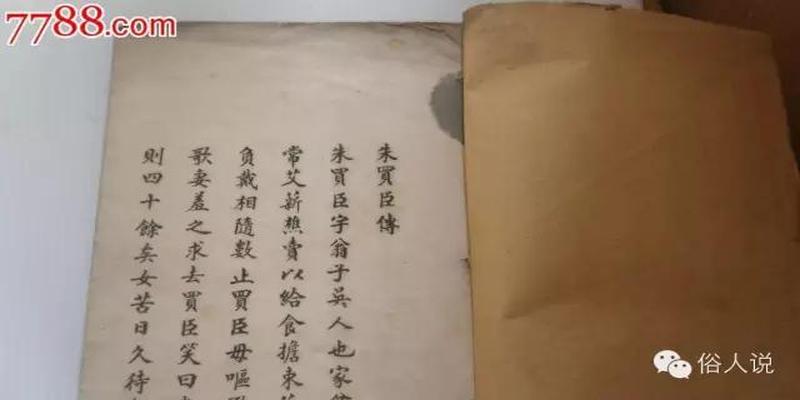 7788.com
朱買臣傳
朱買臣字翁子吳人也家
常艾薪樵賣以給食擔束
負戴相隨數止買臣毋嘔
歌妻羞之求去買臣笑曰
則四十餘矣女苦日久待
俗人说